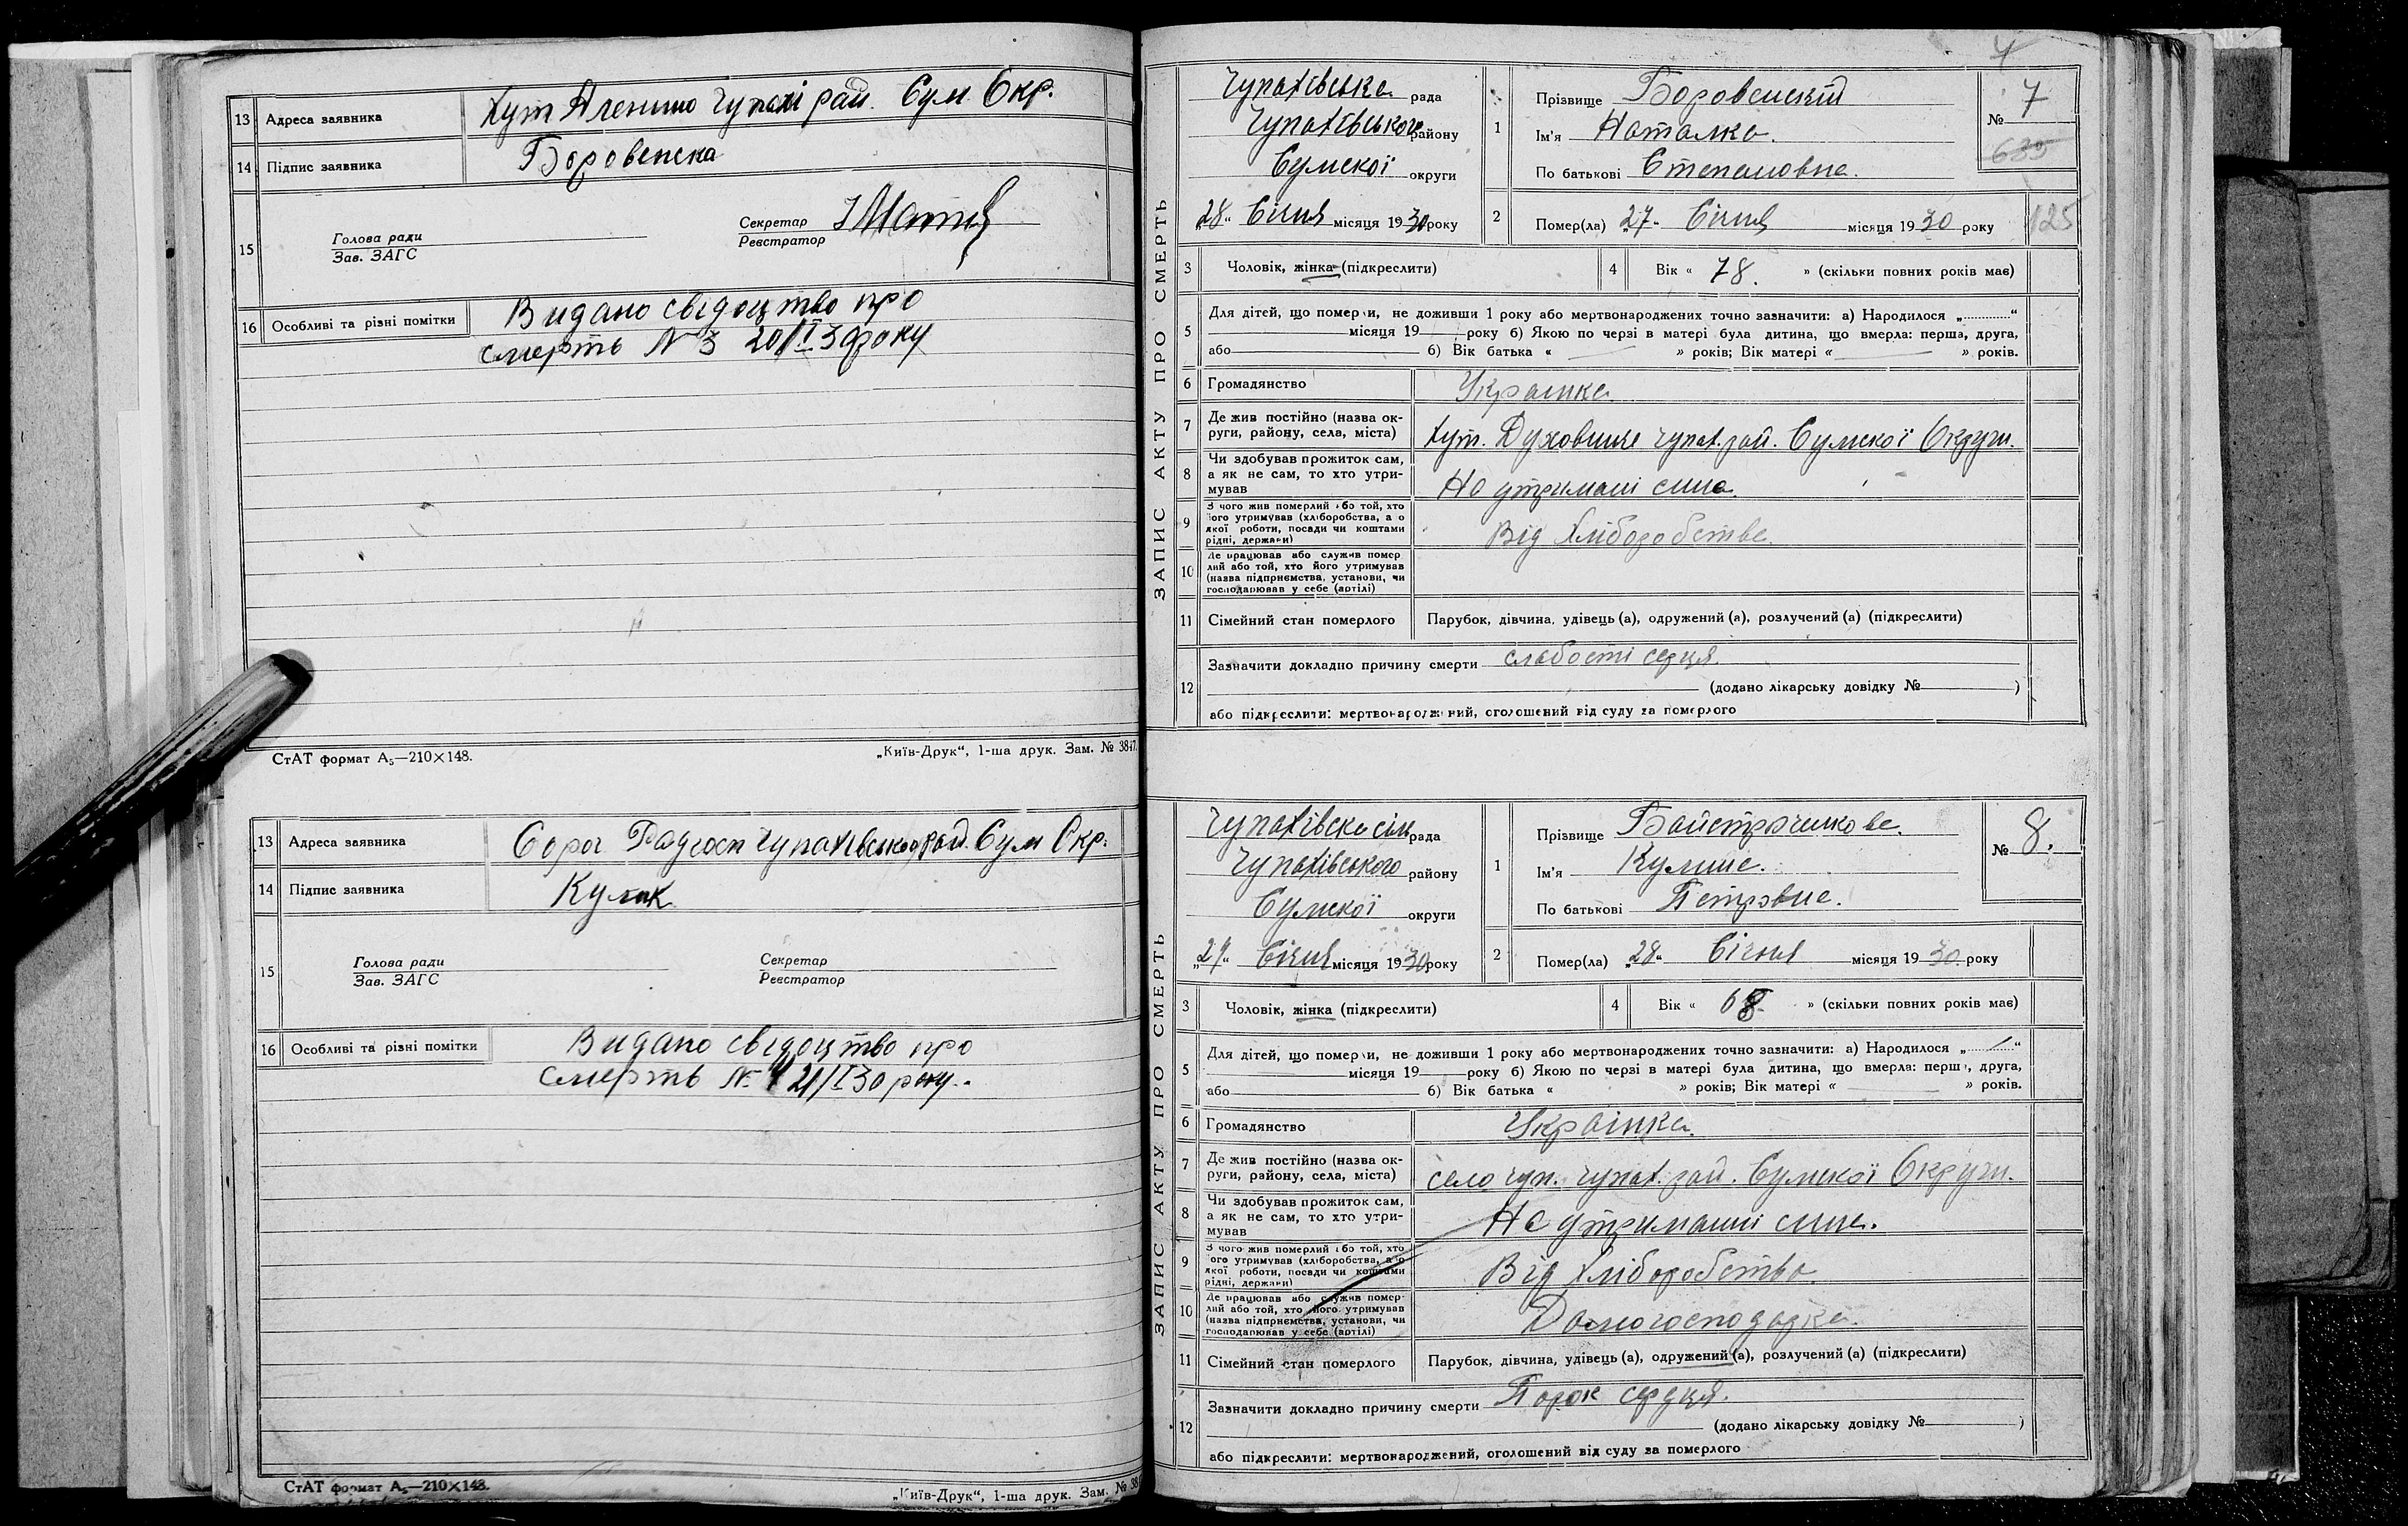 13 Адреса заявника хут Яленино Чупахі рай. Сум Окр.
14 Підпис заявника Боровенска
15 Голова ради
Зав. ЗАГС
Секретар
Реєстратор
16 Особливі та різні помітки Видано свідоцтво про
смерть № 3 20/I 30 року
СтАТ формат А₅—210×148.
„Київ-Друк“, 1-ша друк. Зам. № 3847.
13 Адреса заявника Радгосп Чупахівського рай. Сум Окр.
14 Підпис заявника Кулик
15 Голова ради
Зав. ЗАГС
Секретар
Реєстратор
16 Особливі та різні помітки Видано свідоцтво про
смерть № 4 21/I 30 року.
СтАТ формат А₅—210×148.
„Київ-Друк“, 1-ша друк. Зам. № 38
4
ЗАПИС АКТУ ПРО СМЕРТЬ
Чупахівська рада
Чупахівського району
Сумскої округи
„28“ Січня місяця 1930 року
1 Прізвище Боровенскій
Ім'я Наталка.
По батькові Степановна.
№ 7
639
2 Помер(ла) „27“ Січня місяця 1930 року
125
3 Чоловік, жінка (підкреслити)
4 Вік « 78. » (скільки повних років має)
5 Для дітей, що померли, не доживши 1 року або мертвонароджених точно зазначити: а) Народилося „............“
місяця 19 року б) Якою по черзі в матері була дитина, що вмерла: перша, друга,
або б) Вік батька « » років; Вік матері « » років.
6 Громадянство Українка
7 Де жив постійно (назва округи, району, села, міста) хут. Духовище Чупах. рай. Сумскої Округи.
8 Чи здобував прожиток сам,
а як не сам, то хто утри-
мував На утримані сина.
9 З чого жив померлий або той, хто
його утримував (хліборобства, а о
якої роботи, посади чи коштами
рідні, держави) Від Хліборобства.
10 Де працював або служив помер
лий або той, хто його утримував
(назва підприємства, установи, чи
господарював у себе (артілі)
11 Сімейний стан померлого Парубок, дівчина, удівець (а), одружений (а), розлучений (а) (підкреслити)
12 Зазначити докладно причину смерти слабості серця.
(додано лікарську довідку № )
або підкреслити: мертвонароджений, оголошений від суду за померлого
ЗАПИС АКТУ ПРО СМЕРТЬ
Чупахівска сіль рада
Чупахівського району
Сумскої округи
„29“ Січня місяця 1930 року
1 Прізвище
Ім'я
По батькові Петровна.
№ 8.
2 Помер(ла) „28“ Січня місяця 1930 року
3 Чоловік, жінка (підкреслити)
4 Вік « 68 » (скільки повних років має)
5 Для дітей, що померли, не доживши 1 року або мертвонароджених точно зазначити: а) Народилося „............“
місяця 19 року б) Якою по черзі в матері була дитина, що вмерла: перша, друга,
або б) Вік батька « » років; Вік матері « » років.
6 Громадянство Українка.
7 Де жив постійно (назва округи, району, села, міста) село Чуп. Чупах. рай. Сумскої Округи.
8 Чи здобував прожиток сам,
а як не сам, то хто утри-
мував На утриманні сина.
9 З чого жив померлий або той, хто
його утримував (хліборобства, а о
якої роботи, посади чи коштами
рідні, держави) Від Хліборобства
10 Де працював або служив помер-
лий або той, хто його утримував
(назва підприємства, установи, чи
господарював у себе (артілі) Домогосподарка.
11 Сімейний стан померлого Парубок, дівчина, удівець (а), одружений (а), розлучений (а) (підкреслити)
12 Зазначити докладно причину смерти Порок серця.
(додано лікарську довідку № )
або підкреслити: мертвонароджений, оголошений від суду за померлого